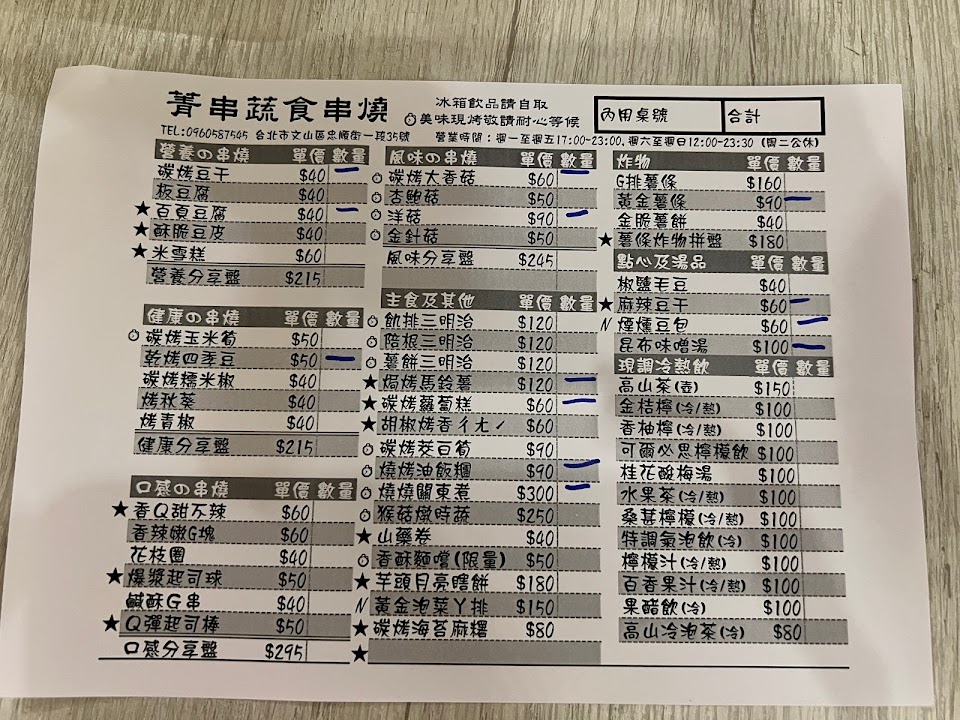 菁串蔬食串燒
冰箱飲品請自取
美味現烤敬請耐心等候
內用桌號 合計
TEL:0960587545 台北市文山區忠順街一段35號 營業時間：週一至週五17:00-23:00,週六至週日12:00-23:30 (周二公休)
營養の串燒 單價 數量
碳烤豆干 $40
板豆腐 $40
★百頁豆腐 $40
★酥脆豆皮 $40
★米雪糕 $60
營養分享盤 $215
健康の串燒 單價 數量
碳烤玉米筍 $50
乾烤四季豆 $50
碳烤糯米椒 $40
烤秋葵 $40
烤青椒 $40
健康分享盤 $215
口感の串燒 單價 數量
★香Q甜不辣 $60
香辣嫩G塊 $60
花枝圈 $40
★爆漿起司球 $50
鹹酥G串 $40
★Q彈起司棒 $50
口感分享盤 $295
風味の串燒 單價 數量
碳烤大香菇 $60
杏鮑菇 $50
洋菇 $90
金針菇 $50
風味分享盤 $245
主食及其他 單價 數量
飢排三明治 $120
陪根三明治 $120
薯餅三明治 $120
★焗烤馬鈴薯 $120
★碳烤蘿蔔糕 $60
★胡椒烤香ㄔㄤˊ $60
碳烤茭白筍 $90
燒烤油飯糰 $90
燒燒關東煮 $300
猴菇燉時蔬 $250
★山藥卷 $40
香酥麵嚐(限量) $50
★芋頭月亮瞎餅 $180
N 黃金泡菜ㄚ排 $150
★碳烤海苔麻糬 $80
★
炸物 單價 數量
G排薯條 $160
黃金薯條 $90
金脆薯餅 $40
★薯條炸物拼盤 $180
點心及湯品 單價 數量
椒鹽毛豆 $40
★麻辣豆干 $60
N 煙燻豆包 $60
昆布味噌湯 $100
現調冷熱飲 單價 數量
高山茶(壺) $150
金桔檸(冷/熱) $100
香柚檸(冷/熱) $100
可爾必思檸檬飲 $100
桂花酸梅湯 $100
水果茶(冷/熱) $100
桑葚檸檬(冷/熱) $100
特調氣泡飲(冷) $100
檸檬汁(冷/熱) $100
百香果汁(冷/熱) $100
果醋飲(冷) $100
高山冷泡茶(冷) $80